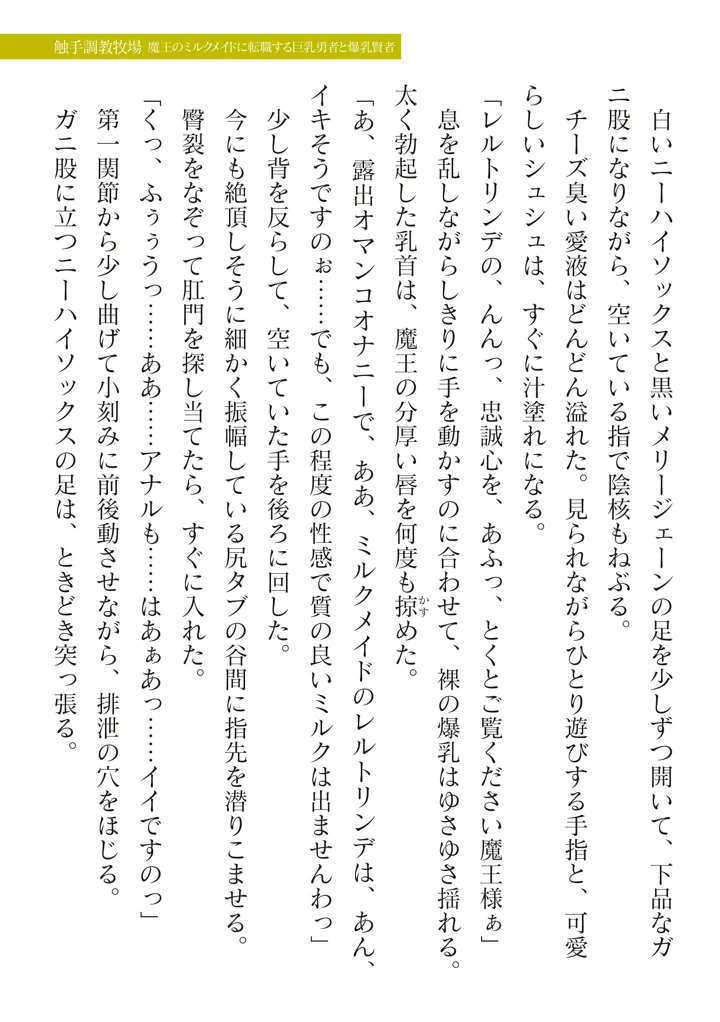 触手調教牧場 魔王のミルクメイドに転職する巨乳勇者と爆乳賢者
白いニーハイソックスと黒いメリージェーンの足を少しずつ開いて、下品なガ
ニ股になりながら、空いている指で陰核もねぶる。
チーズ臭い愛液はどんどん溢れた。見られながらひとり遊びする手指と、可愛
らしいシュシュは、すぐに汁塗れになる。
「レルトリンデの、んんっ、忠誠心を、あふっ、とくとご覧ください魔王様ぁ」
息を乱しながらしきりに手を動かすのに合わせて、裸の爆乳はゆさゆさ揺れる。
太く勃起した乳首は、魔王の分厚い唇を何度も掠めた。
かす
「あ、露出オマンコオナニーで、ああ、ミルクメイドのレルトリンデは、あん、
イキそうですのぉ……でも、この程度の性感で質の良いミルクは出ませんわっ」
少し背を反らして、空いていた手を後ろに回した。
今にも絶頂しそうに細かく振幅している尻タブの谷間に指先を潜りこませる。
臀裂をなぞって肛門を探し当てたら、すぐに入れた。
「くっ、ふぅぅうっ……ああ……アナルも……はあぁあっ……イイですのっ」
第一関節から少し曲げて小刻みに前後動させながら、排泄の穴をほじる。
ガニ股に立つニーハイソックスの足は、ときどき突っ張る。